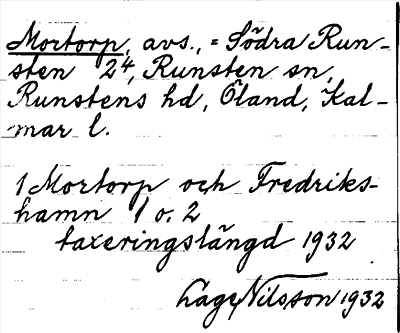 Mortorp, avs., = Södra Run-
sten 2⁴, Runsten sn,
Runstens hd, Öland, Kal-
mar l.
1 Mortorp och Fredriks-
hamn 1 o. 2
taxeringslängd 1932
Låge Nilsson 1932